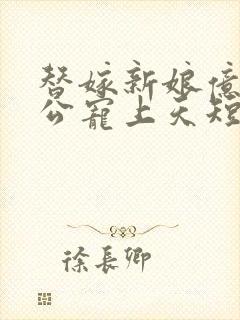 替嫁新娘億
公寵上天短
徐長卿